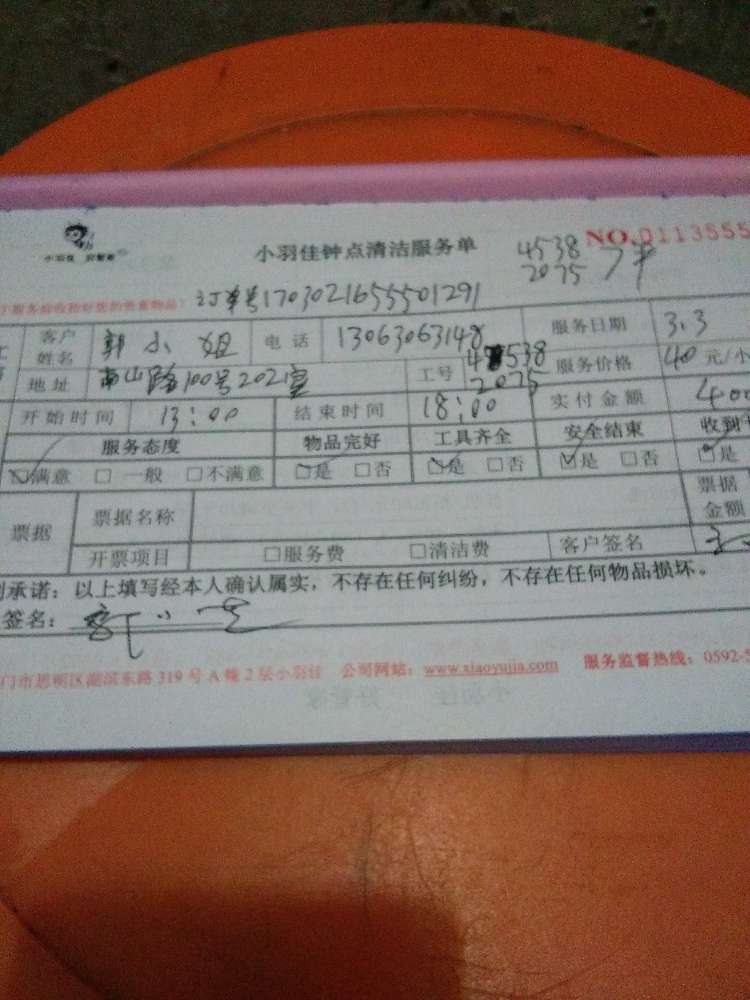 小羽佳 好管家
小羽佳钟点清洁服务单
4538
2075
NO.0113555
订单号17030216555501291
客户姓名 郭小姐 电话 13063063148 服务日期 3.3
地址 南山路100号2021室 工号 4538 2075 服务价格 40元/小
开始时间 13:00 结束时间 18:00 实付金额 400
服务态度 物品完好 工具齐全 安全结束 收到
☑满意 □一般 □不满意 ☑是 □否 ☑是 □否 ☑是 □否 ☑是
票据 票据名称 票据金额
开票项目 □服务费 □清洁费 客户签名
承诺：以上填写经本人确认属实，不存在任何纠纷，不存在任何物品损坏。
签名：
门市思明区湖滨东路319号A幢2层小羽佳 公司网站：www.xiaoyujia.com 服务监督热线：0592-5